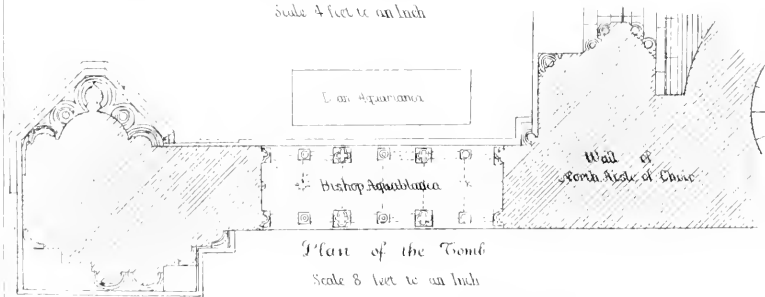 Scale 4 feet to an Inch
Dean Aquabianca
Bishop Aquablanca
Wall of
North Aisle of Choir
Plan of the Tomb
Scale 8 feet to an Inch